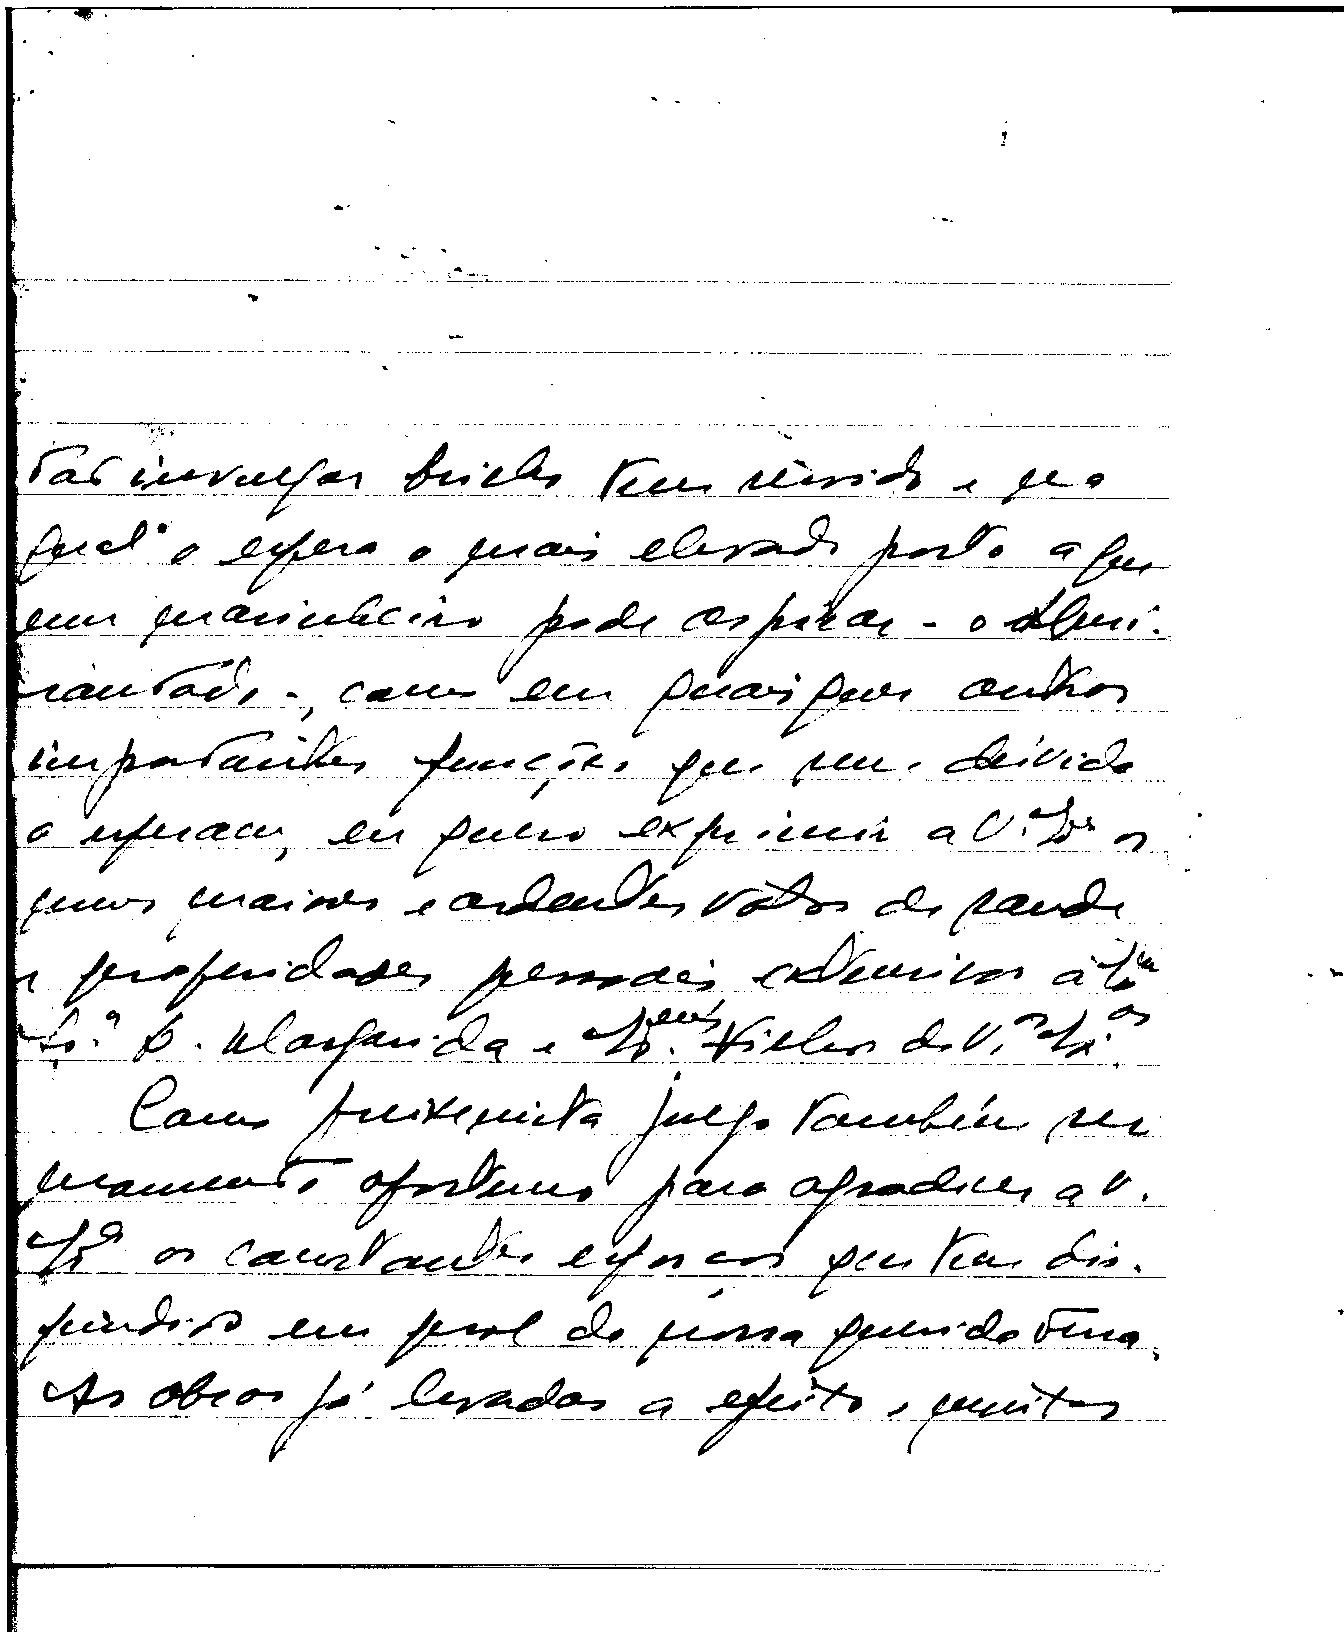 tão invulgar brilho tem servido e na
qual o espera o mais elevado posto a que
um marinheiro pode aspirar - o Almi-
rantado -, como em quaisquer outras
importantes funções que sem dúvida
o esperam, eu quero exprimir a V. Exª os
meus maiores e ardentes votos de saude
e prosperidades pessoais extensivos à Exma
Srª D. Margarida e Exmos Filhos de V. Exª.
Como julgo também ser
momento oportuno para agradecer a V.
Exª os constantes esforços que tem dis-
pendido em prol da nossa querida terra.
As obras já levadas a efeito, muitas